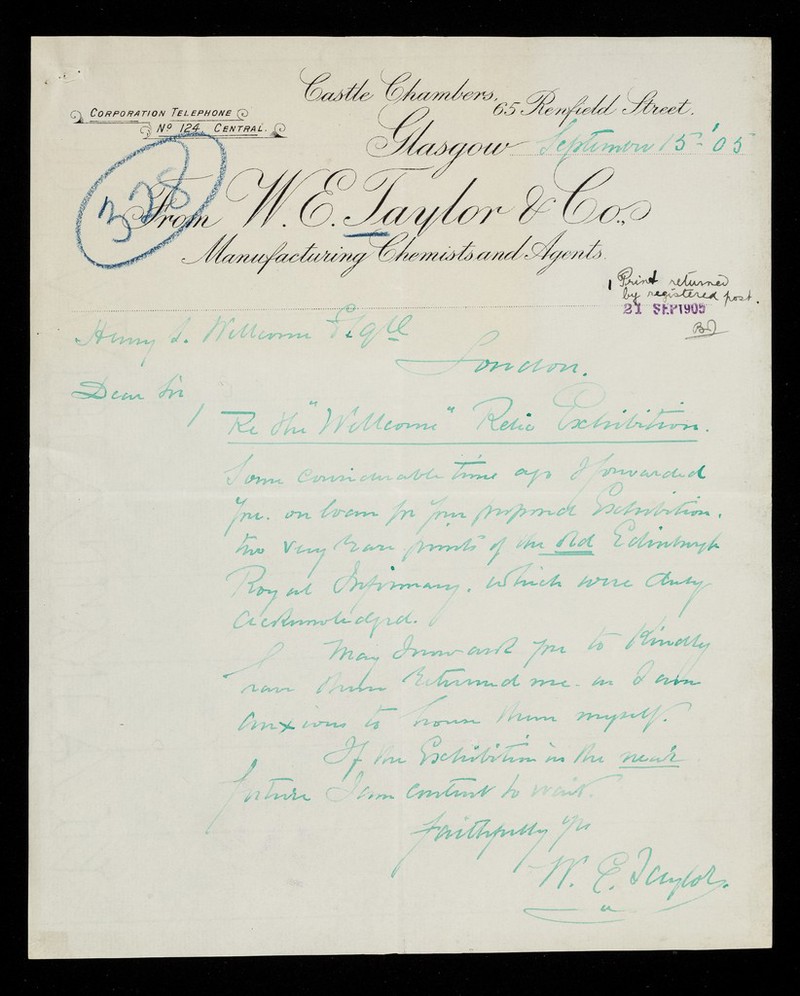 Castle Chambers,
65 Renfield Street.
CORPORATION TELEPHONE
Nº 124 CENTRAL.
Glasgow September 15 '05
328
From W. E. Taylor & Co.,
Manufacturing Chemists and Agents.
1 Print returned
by registered post.
21 SEP 1905
Henry S. Wellcome Esqre
London.
Dear Sir
Re the "Wellcome" Relic Exhibition.
Some considerable time ago I forwarded
you. on loan for your proposed Exhibition.
two very rare prints of the old Edinburgh
Royal Infirmary. which were duly
acknowledged.
May I now ask you to Kindly
have them returned me. as I am
anxious to house them myself.
If the Exhibition in the near
future I am content to wait.
faithfully Yrs
W. E. Taylor.